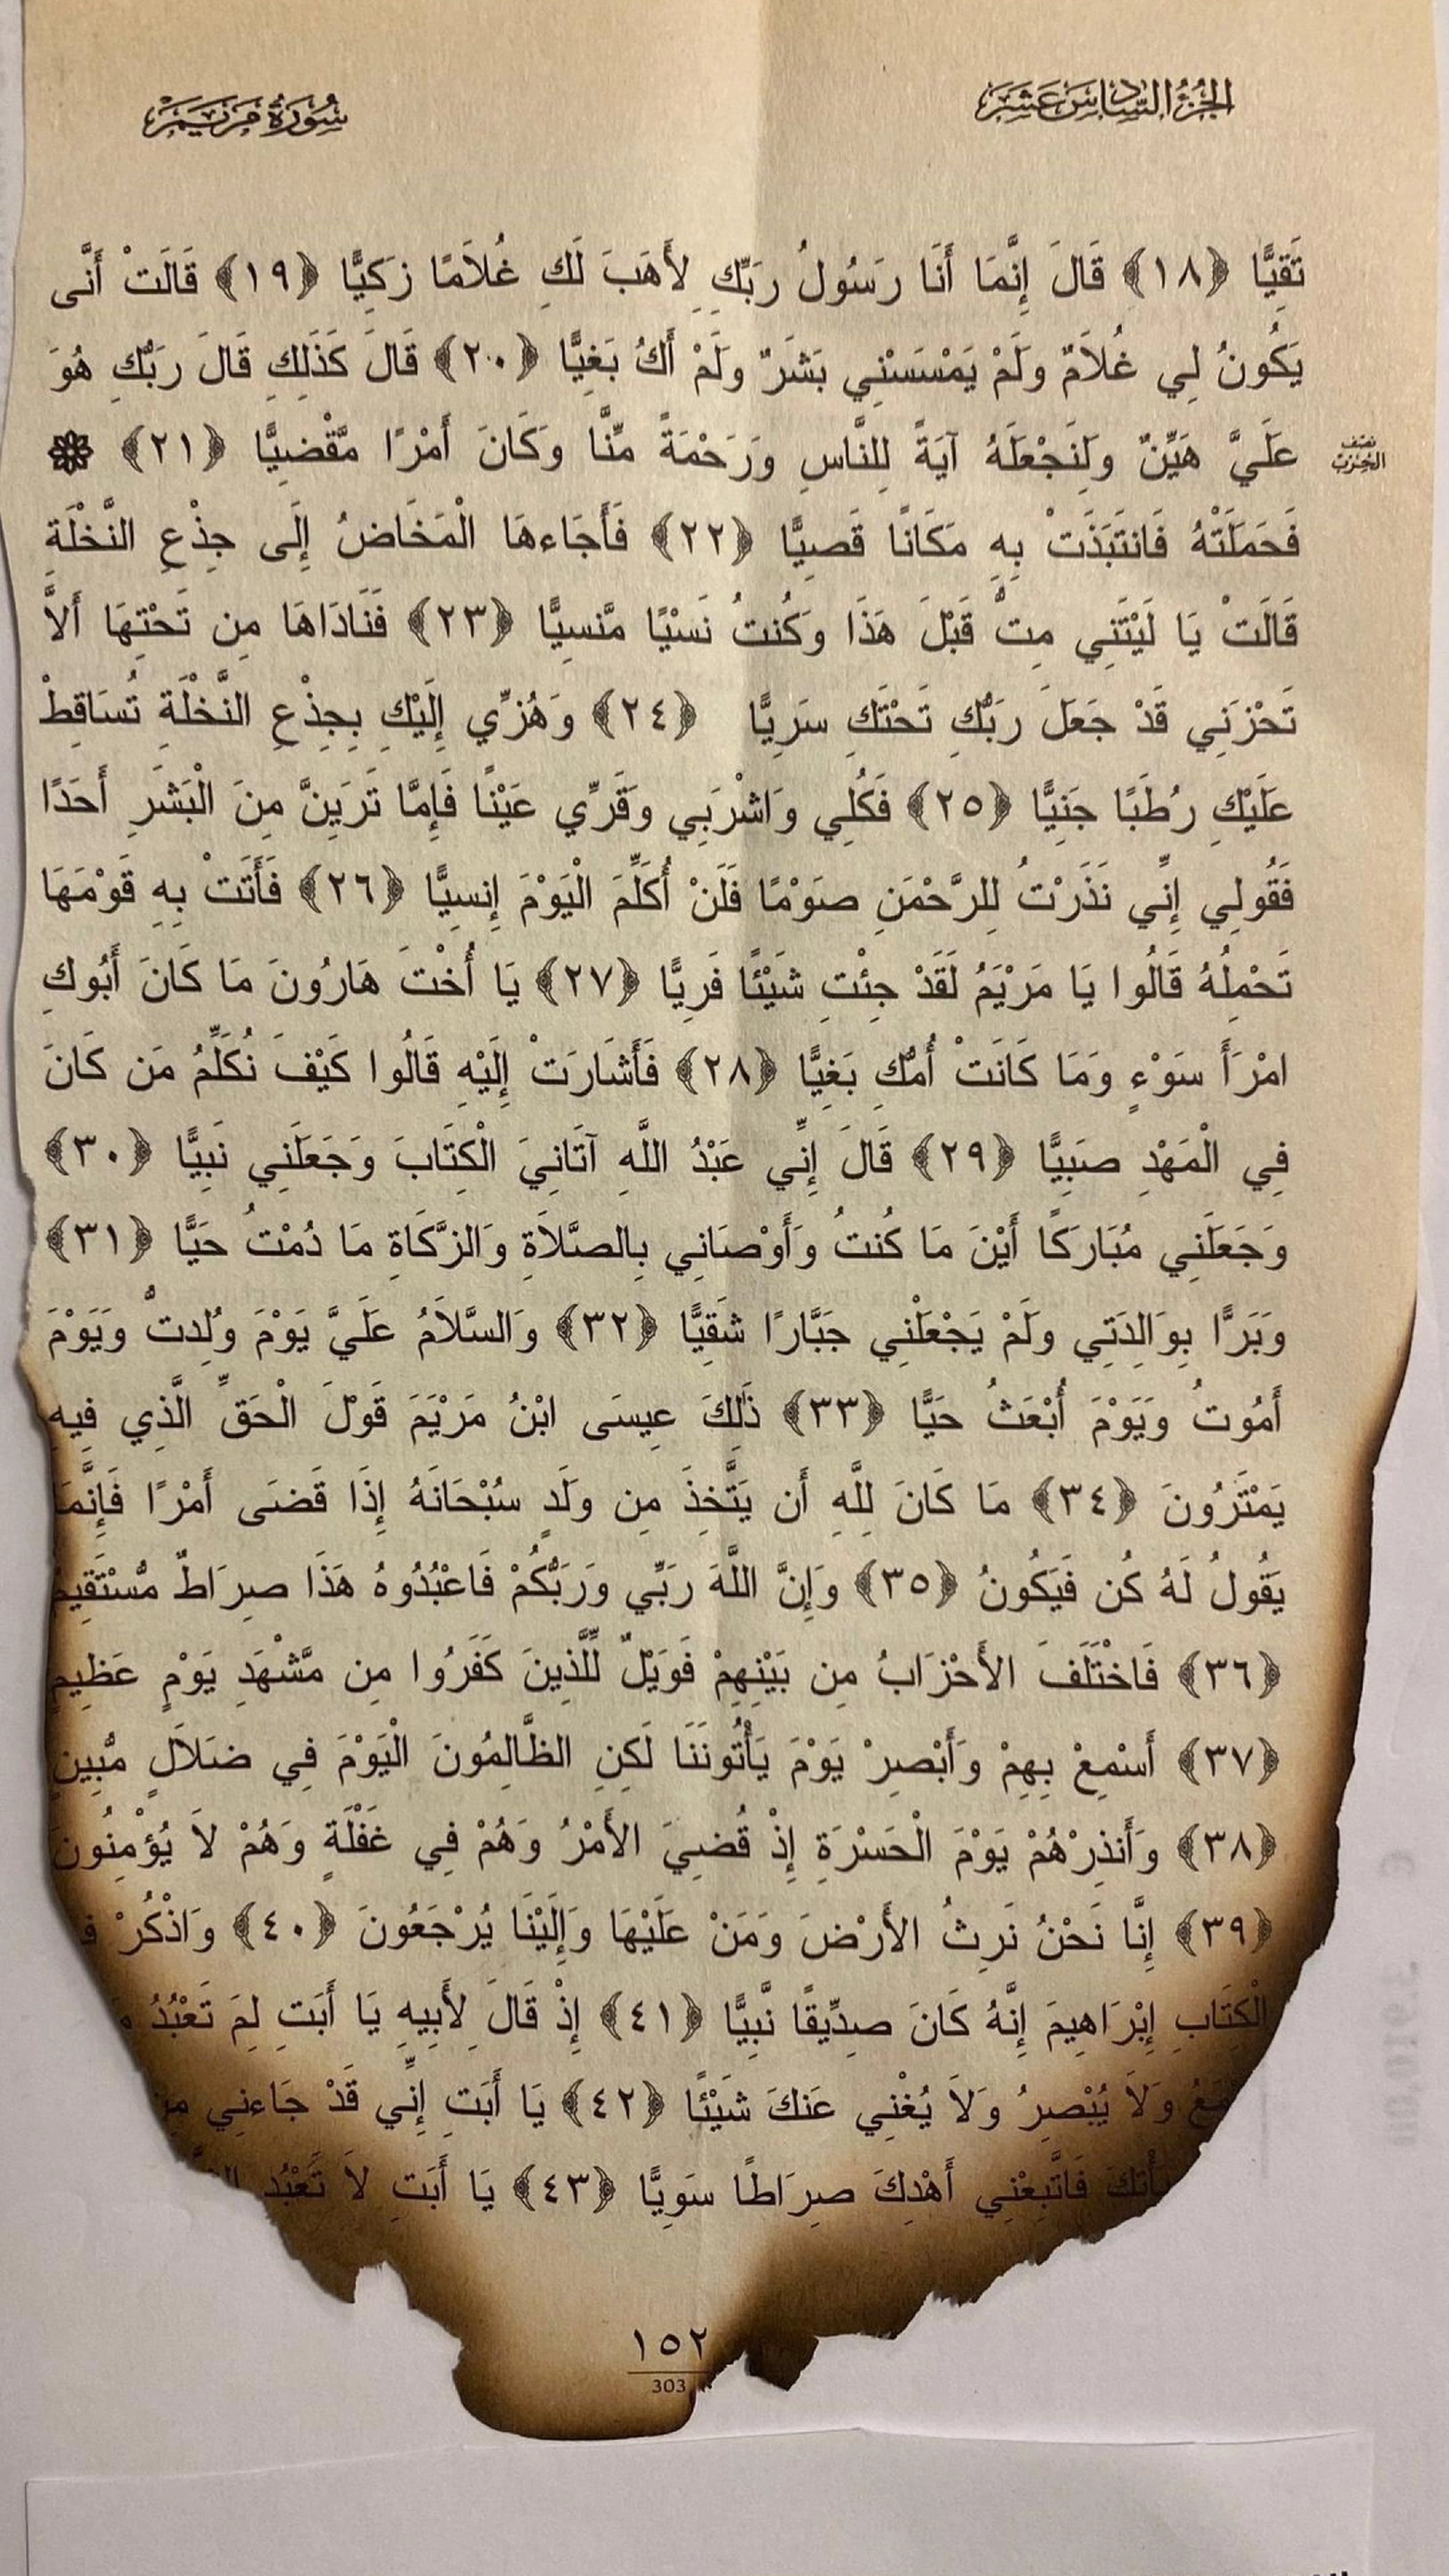 الجزء السادس عشر
سورة مريم
تَقِيًّا ﴿١٨﴾ قَالَ إِنَّمَا أَنَا رَسُولُ رَبِّكِ لِأَهَبَ لَكِ غُلَامًا زَكِيًّا ﴿١٩﴾ قَالَتْ أَنَّى
يَكُونُ لِي غُلَامٌ وَلَمْ يَمْسَسْنِي بَشَرٌ وَلَمْ أَكُ بَغِيًّا ﴿٢٠﴾ قَالَ كَذَلِكِ قَالَ رَبُّكِ هُوَ
عَلَيَّ هَيِّنٌ وَلِنَجْعَلَهُ آيَةً لِلنَّاسِ وَرَحْمَةً مِّنَّا وَكَانَ أَمْرًا مَّقْضِيًّا ﴿٢١﴾ ۞
نصف الحزب
فَحَمَلَتْهُ فَانتَبَذَتْ بِهِ مَكَانًا قَصِيًّا ﴿٢٢﴾ فَأَجَاءهَا الْمَخَاضُ إِلَى جِذْعِ النَّخْلَةِ
قَالَتْ يَا لَيْتَنِي مِتُّ قَبْلَ هَذَا وَكُنتُ نَسْيًا مَّنسِيًّا ﴿٢٣﴾ فَنَادَاهَا مِن تَحْتِهَا أَلاَّ
تَحْزَنِي قَدْ جَعَلَ رَبُّكِ تَحْتَكِ سَرِيًّا ﴿٢٤﴾ وَهُزِّي إِلَيْكِ بِجِذْعِ النَّخْلَةِ تُسَاقِطْ
عَلَيْكِ رُطَبًا جَنِيًّا ﴿٢٥﴾ فَكُلِي وَاشْرَبِي وَقَرِّي عَيْنًا فَإِمَّا تَرَيِنَّ مِنَ الْبَشَرِ أَحَدًا
فَقُولِي إِنِّي نَذَرْتُ لِلرَّحْمَنِ صَوْمًا فَلَنْ أُكَلِّمَ الْيَوْمَ إِنسِيًّا ﴿٢٦﴾ فَأَتَتْ بِهِ قَوْمَهَا
تَحْمِلُهُ قَالُوا يَا مَرْيَمُ لَقَدْ جِئْتِ شَيْئًا فَرِيًّا ﴿٢٧﴾ يَا أُخْتَ هَارُونَ مَا كَانَ أَبُوكِ
امْرَأَ سَوْءٍ وَمَا كَانَتْ أُمُّكِ بَغِيًّا ﴿٢٨﴾ فَأَشَارَتْ إِلَيْهِ قَالُوا كَيْفَ نُكَلِّمُ مَن كَانَ
فِي الْمَهْدِ صَبِيًّا ﴿٢٩﴾ قَالَ إِنِّي عَبْدُ اللَّهِ آتَانِيَ الْكِتَابَ وَجَعَلَنِي نَبِيًّا ﴿٣٠﴾
وَجَعَلَنِي مُبَارَكًا أَيْنَ مَا كُنتُ وَأَوْصَانِي بِالصَّلَاةِ وَالزَّكَاةِ مَا دُمْتُ حَيًّا ﴿٣١﴾
وَبَرًّا بِوَالِدَتِي وَلَمْ يَجْعَلْنِي جَبَّارًا شَقِيًّا ﴿٣٢﴾ وَالسَّلَامُ عَلَيَّ يَوْمَ وُلِدتُّ وَيَوْمَ
أَمُوتُ وَيَوْمَ أُبْعَثُ حَيًّا ﴿٣٣﴾ ذَلِكَ عِيسَى ابْنُ مَرْيَمَ قَوْلَ الْحَقِّ الَّذِي فِيهِ
يَمْتَرُونَ ﴿٣٤﴾ مَا كَانَ لِلَّهِ أَن يَتَّخِذَ مِن وَلَدٍ سُبْحَانَهُ إِذَا قَضَى أَمْرًا فَإِنَّمَا
يَقُولُ لَهُ كُن فَيَكُونُ ﴿٣٥﴾ وَإِنَّ اللَّهَ رَبِّي وَرَبُّكُمْ فَاعْبُدُوهُ هَذَا صِرَاطٌ مُّسْتَقِيمٌ
﴿٣٦﴾ فَاخْتَلَفَ الأَحْزَابُ مِن بَيْنِهِمْ فَوَيْلٌ لِّلَّذِينَ كَفَرُوا مِن مَّشْهَدِ يَوْمٍ عَظِيمٍ
﴿٣٧﴾ أَسْمِعْ بِهِمْ وَأَبْصِرْ يَوْمَ يَأْتُونَنَا لَكِنِ الظَّالِمُونَ الْيَوْمَ فِي ضَلَالٍ مُّبِينٍ
﴿٣٨﴾ وَأَنذِرْهُمْ يَوْمَ الْحَسْرَةِ إِذْ قُضِيَ الأَمْرُ وَهُمْ فِي غَفْلَةٍ وَهُمْ لَا يُؤْمِنُونَ
﴿٣٩﴾ إِنَّا نَحْنُ نَرِثُ الأَرْضَ وَمَنْ عَلَيْهَا وَإِلَيْنَا يُرْجَعُونَ ﴿٤٠﴾ وَاذْكُرْ
الْكِتَابِ إِبْرَاهِيمَ إِنَّهُ كَانَ صِدِّيقًا نَّبِيًّا ﴿٤١﴾ إِذْ قَالَ لِأَبِيهِ يَا أَبَتِ لِمَ تَعْبُدُ
وَلَا يُبْصِرُ وَلَا يُغْنِي عَنكَ شَيْئًا ﴿٤٢﴾ يَا أَبَتِ إِنِّي قَدْ جَاءنِي
فَاتَّبِعْنِي أَهْدِكَ صِرَاطًا سَوِيًّا ﴿٤٣﴾ يَا أَبَتِ لَا تَعْبُدِ
١٥٢
303